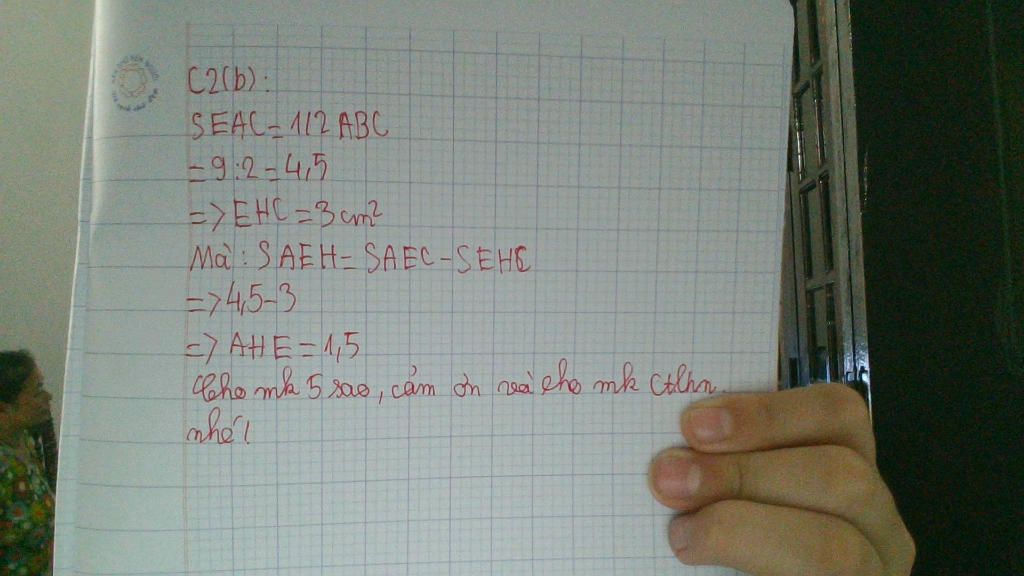 C2(b):
SEAC = 1/2 ABC
= 9 : 2 = 4,5
=> EHC = 3 cm2
Mà : SAEH = SAEC - SEHC
=> 4,5 - 3
=> AHE = 1,5
Cho mk 5 sao, cảm ơn và cho mk ctlhn
nhé!